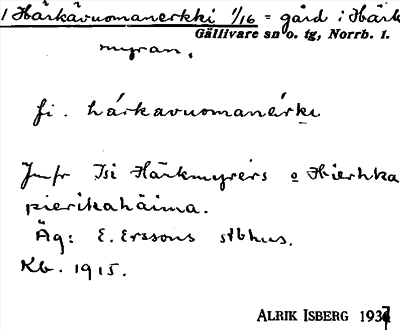 1 Härkävuomanerkki 1/16 = gård i Härk
Gällivare sn o. tg, Norrb. l.
myran.
fi. hárkavuomanérke
Jmfr Isi Härkmyrers o Hierhka
pierikahäima.
Äg: E. Erssons stbhus.
Kb. 1915.
ALRIK ISBERG 1934